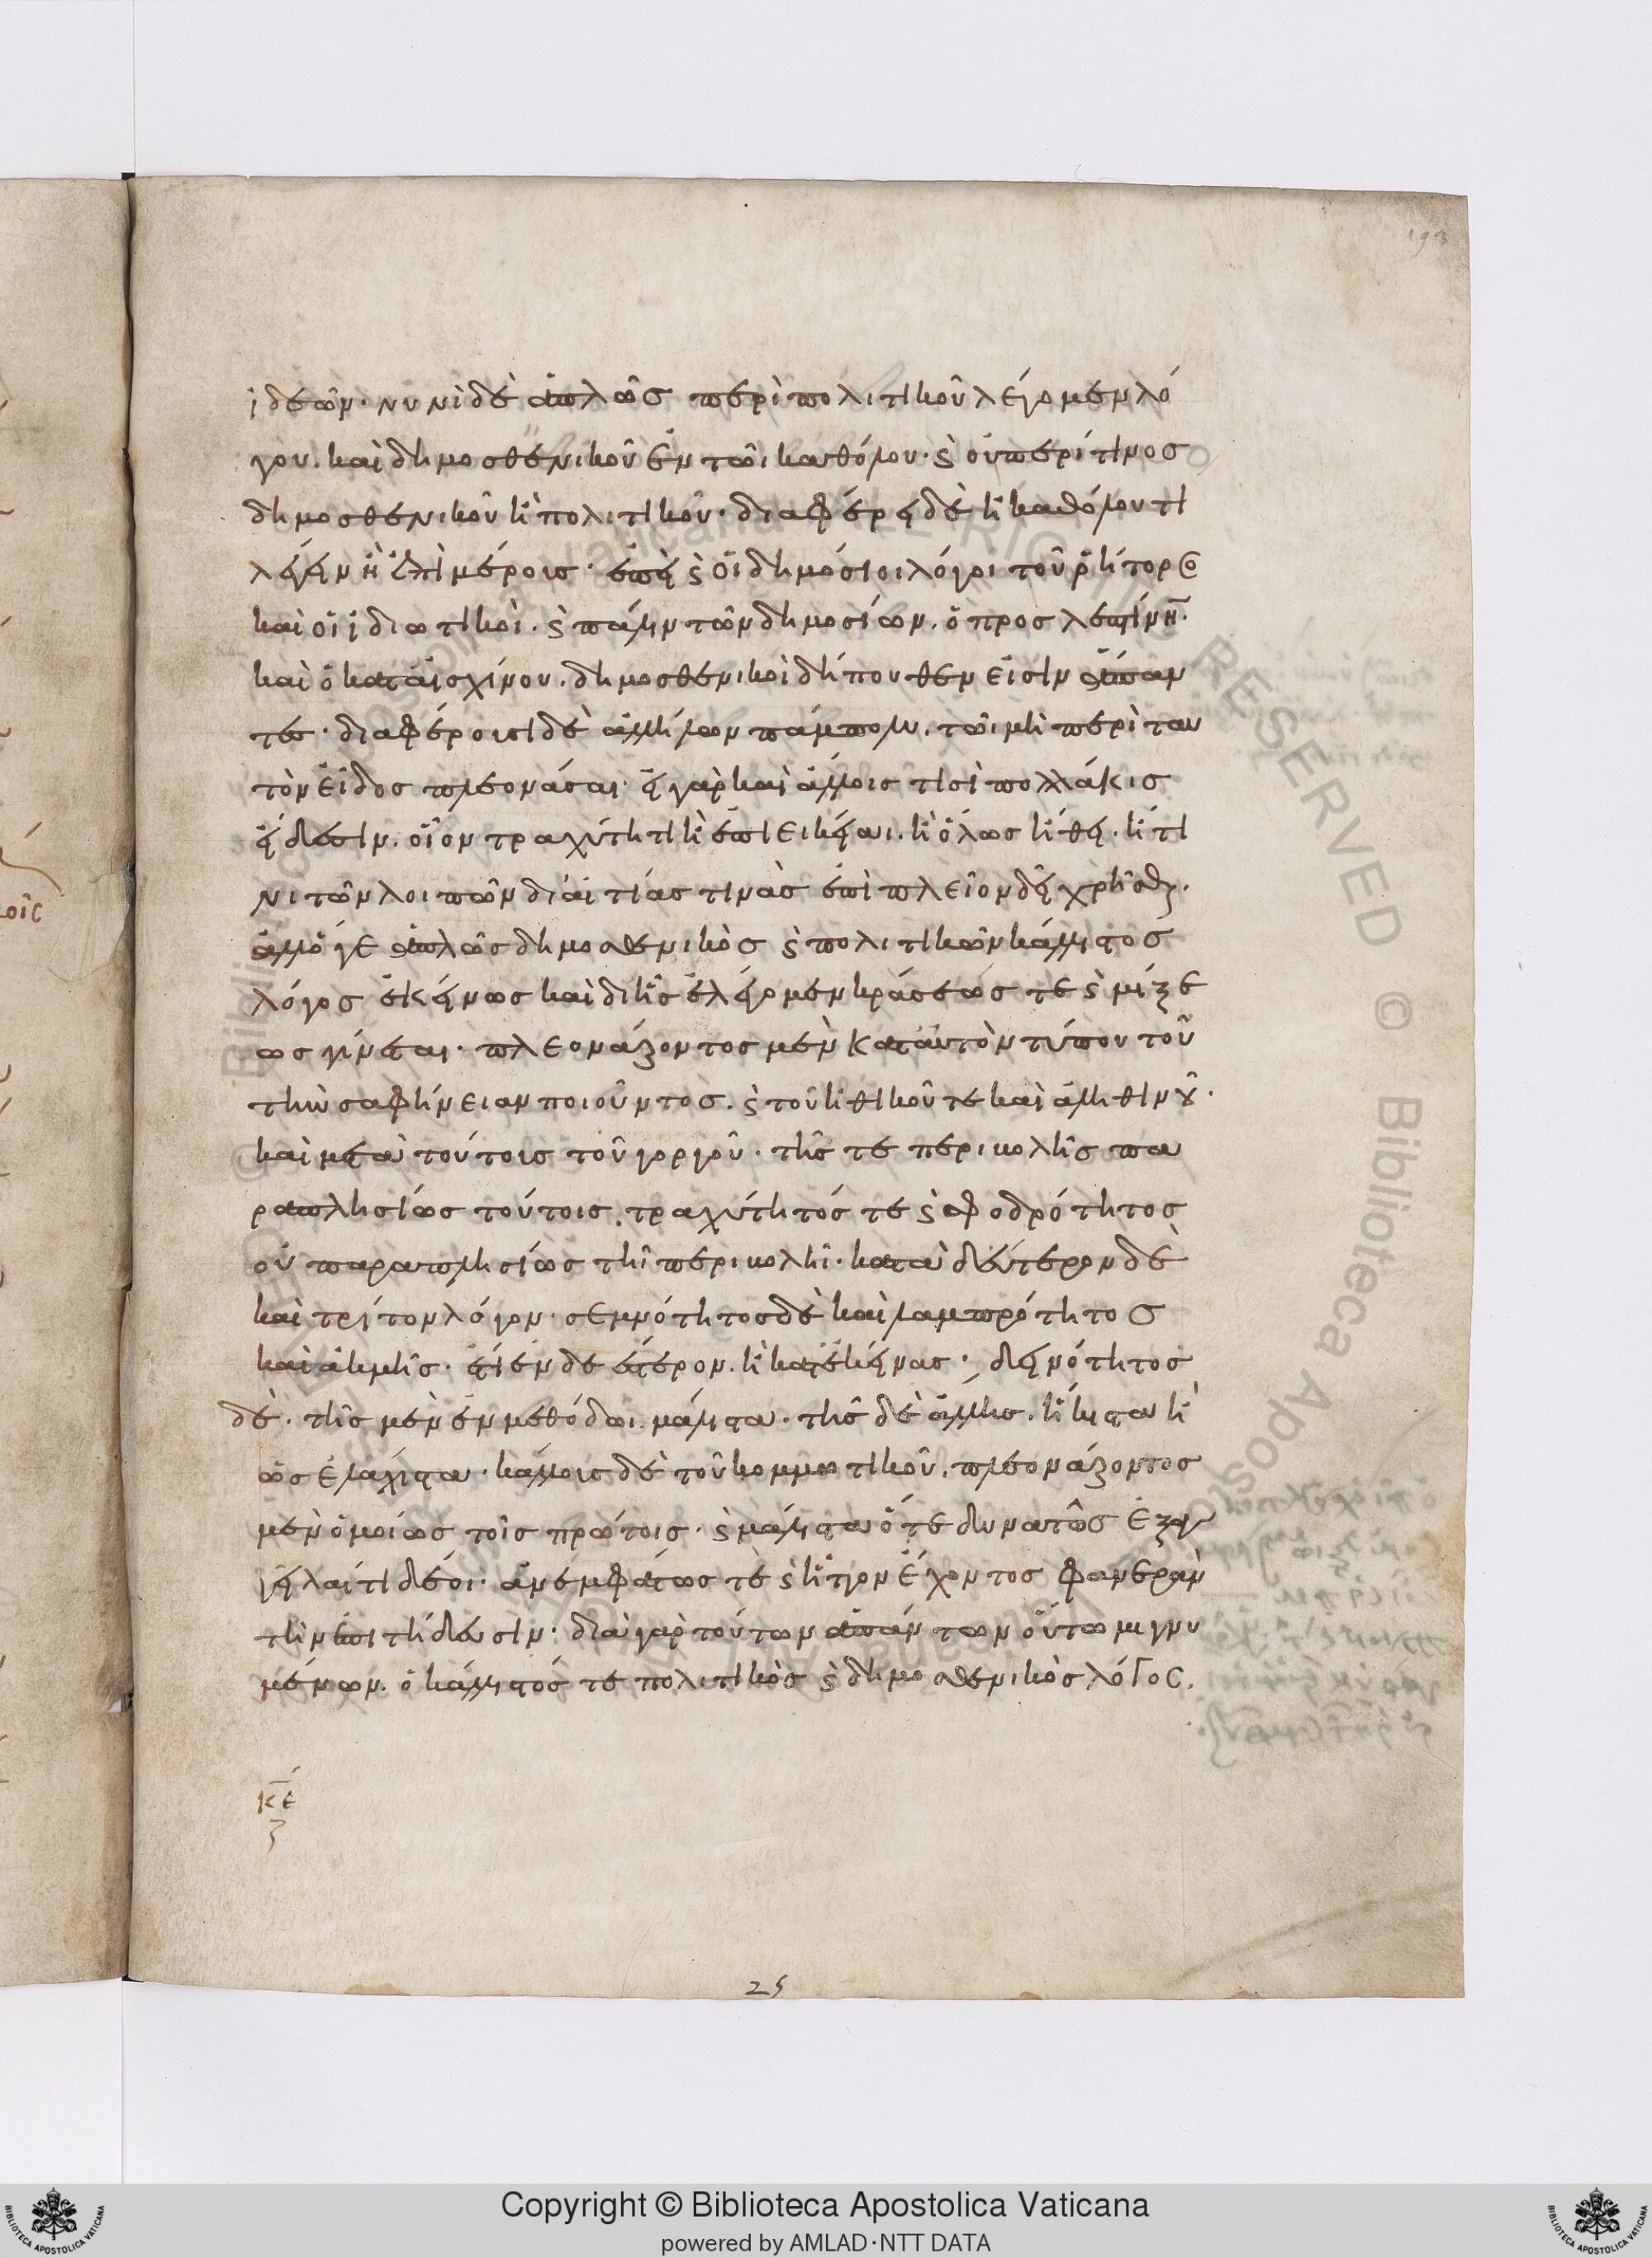 193
ἰδεῶν· νυνὶ δὲ ἁπλῶς περὶ πολιτικοῦ λέγομεν λό
γου. καὶ δημοσθενικοῦ ἐν τῶι καθόλου· ϛ̀ οὐ περί τινος
δημοσθενικοῦ ἢ πολιτικοῦ· διαφέρει δὲ ἢ καθόλου τι
λέγειν ἢ ἐπὶ μέρους· ἐπεὶ ϛ̀ οἱ δημόσιοι λόγοι τοῦ ῥήτορος
καὶ οἱ ἰδιωτικοὶ. ϛ̀ πάλιν τῶν δημοσίων. ὁ προς λεπτίνην.
καὶ ὁ κατ αἰσχίνου. δημοσθενικοὶ δήπουθεν εἰσὶν ἅπαν
τες· διαφέρουσι δὲ ἀλλήλων πάμπολυ. τῶι μὴ περὶ ταυ
τὸν εἶδος πλεονάσαι· εἰ γὰρ καὶ ἄλλοις τισὶ πολλάκις
εἴδεσιν. οἷον τραχύτητι ἢ ἐπιεικείαι. ἢ ὅλως ἤθει. ἤ τι
νι τῶν λοιπῶν δι αἰτίας τινὰς ἐπὶ πλεῖον δεῖ χρῆσθαι.
ἀλλ ὅ γε ἁπλῶς δημοσθενικὸς ϛ̀ πολιτικῶν κάλλιστος
λόγος ἐκείνως καὶ δι ἧς ἐλέγομεν κράσεώς τε ϛ̀ μίξε
ως γίνεται· πλεονάζοντος μὲν κατ αὐτὸν τύπου τοῦ
τὴν σαφήνειαν ποιοῦντος. ϛ̀ τοῦ ἠθικοῦ τε καὶ ἀληθινοῦ.
καὶ μετὰ τούτοις τοῦ γοργοῦ· τῆς τε περιβολῆς πα
ραπλησίως τούτοις. τραχύτητός τε ϛ̀ σφοδρότητος
οὐ παραπλησίως τῆι περιβολῆι. κατὰ δεύτερον δὲ
καὶ τρίτον λόγον· σεμνότητος δὲ καὶ λαμπρότητος
καὶ ἀκμῆς· ἔτι ἐνδεέστερον. ἢ κατ ἐκείνας· δεινότητος
δὲ. τῆς μὲν ἐν μεθόδωι. μάλιστα. τῆς δὲ ἄλλης. ἥκιστα ἢ
ὡς ἐλάχιστα. κάλλους δὲ τοῦ κομμωτικοῦ. πλεονάζοντος
μὲν ὁμοίως τοῖς πρώτοις. ϛ̀ μάλιστα ὅτε δυνατῶς ἐξαγ
γεῖλαί τι δέοι. ἀνεμφάτως τέ ϛ̀ ἧττον ἔχοντος φανερὰν
τὴν ἐπιτήδευσιν· διὰ γὰρ τούτων ἁπάντων οὕτω μιγνυ
μένων. ὁ κάλλιστός τε πολιτικὸς ϛ̀ δημοσθενικὸς λόγος.
κε
ζ
25
οῖς
Copyright © Biblioteca Apostolica Vaticana
powered by AMLAD·NTT DATA